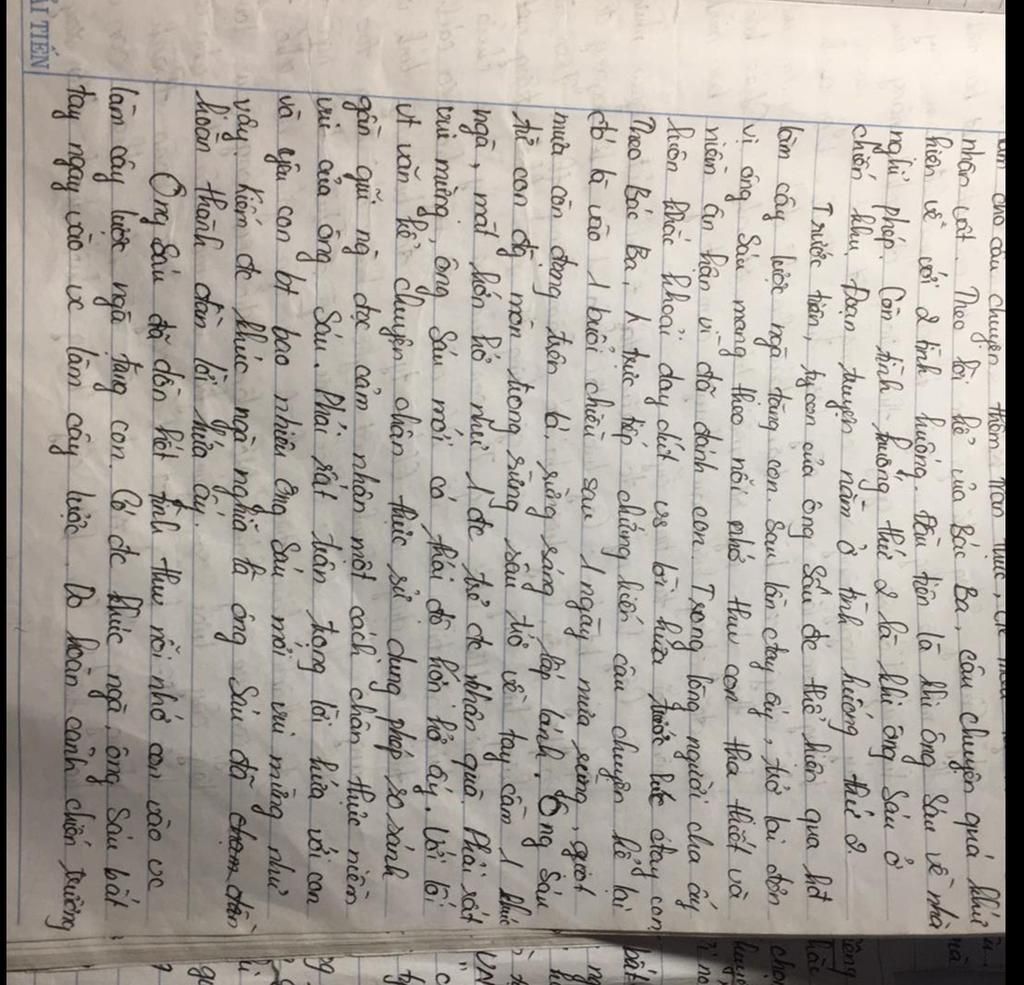 cho câu chuyện thêm chân thực,
nhân vật. Theo lời kể của Bác Ba, câu chuyện quá khứ
hiện về với 2 tình huống. Đầu tiên là khi ông Sáu về nhà
nghỉ phép. Còn tình huống thứ 2 là khi ông Sáu ở
chiến khu. Đoạn truyện nằm ở tình huống thứ 2.
Trước tiên, ty con của ông Sáu đc thể hiện qua
làm cây lược ngà tặng con. Sau lần chay ấy, trở lại đơn
vị ông Sáu mang theo nỗi nhớ thw con tha thiết và
niềm ân hận vì đã đánh con. Trong lòng người cha ấy
luôn khắc khoải day dứt vs lời hứa trước lúc chay con.
Theo Bác Ba, trực tiếp chứng kiến câu chuyện kể lại
đó là vào 1 buổi chiều sau 1 ngày mưa rừng, giọt
mưa còn đọng trên lá, rừng sáng lấp lánh. Ông Sáu
từ con đg mòn trong rừng sâu trở về tay cầm 1 khúc
ngà, mặt hớn hở như 1 đc trẻ đc nhận quà. Phải rất
vui mừng, ông Sáu mới có thái độ hớn hở ấy. Với lối
vt văn kể chuyện chân thực sử dụng phép so sánh
gần gũi ng đọc cảm nhận một cách chân thực niềm
vui của ông Sáu. Phải rất trân trọng lời hứa với con
và yêu con bt bao nhiêu ông Sáu mới vui mừng như
vậy. Kiếm đc khúc ngà nghĩa là ông Sáu đã chạm dần
hoàn thành dần lời hứa ấy.
Ông Sáu đã dồn hết tình thw nỗi nhớ con vào vc
làm cây lược ngà tặng con. Có đc khúc ngà, ông Sáu bắt
tay ngay vào vc làm cây lược. Do hoàn cảnh chiến trường
ẢI TIẾN